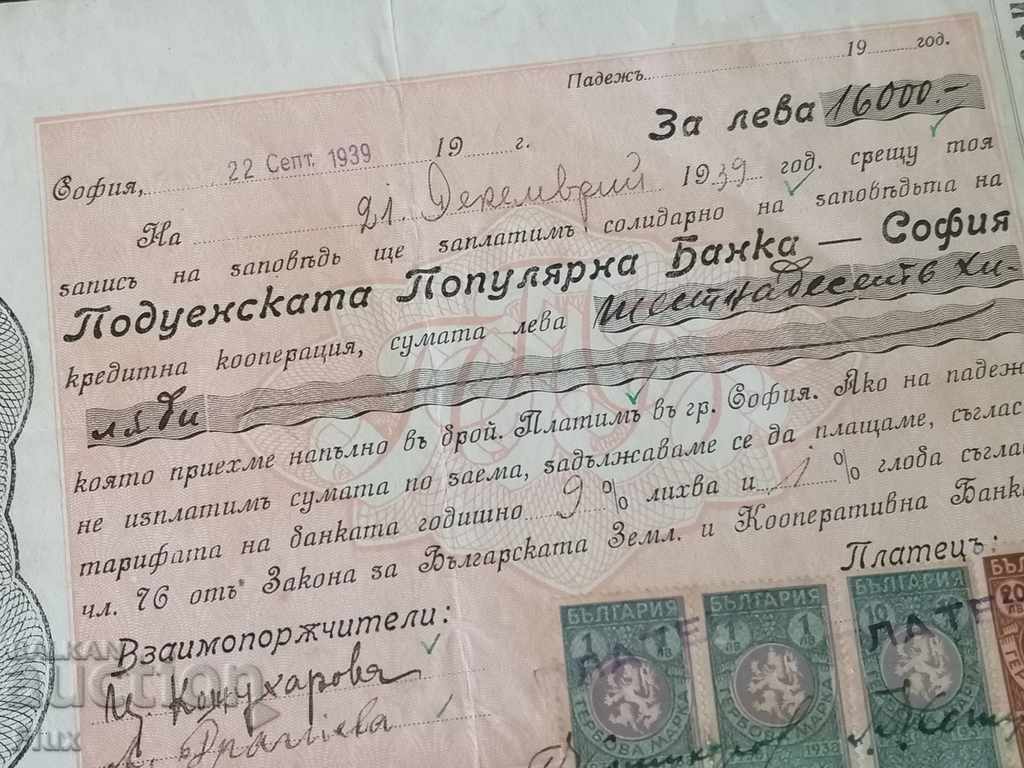 Падежъ 19 год.
За лева 16000.-
София, 22 Септ. 1939 19 г.
На 21. Декемврий 1939 год. срещу тоя
запись на заповѣдь ще заплатимъ солидарно на заповѣдьта на
Подуенската Популярна Банка — София
кредитна кооперация, сумата лева Шестнадесеть хи-
ляди
която приехме напълно въ брой. Платимъ въ гр. София. Ако на падеж
не изплатимъ сумата по заема, задължаваме се да плащаме, съглас
тарифата на банката годишно 9 % лихва и 1 % глоба съглас
чл. 76 отъ Закона за Българската Земл. и Кооперативна Банк
Платецъ:
Взаимопорѫчители:
БЪЛГАРИЯ БЪЛГАРИЯ БЪЛГАРИЯ
1 1 ЛВ 1 1 ЛВ 10 20
ПЛАТЕ ПЛАТЕ
ГЕРБОВА МАРКА ГЕРБОВА МАРКА ГЕРБОВА МАРКА
1938
Кожухарова
Драгиева
BALKAN
auction
flux